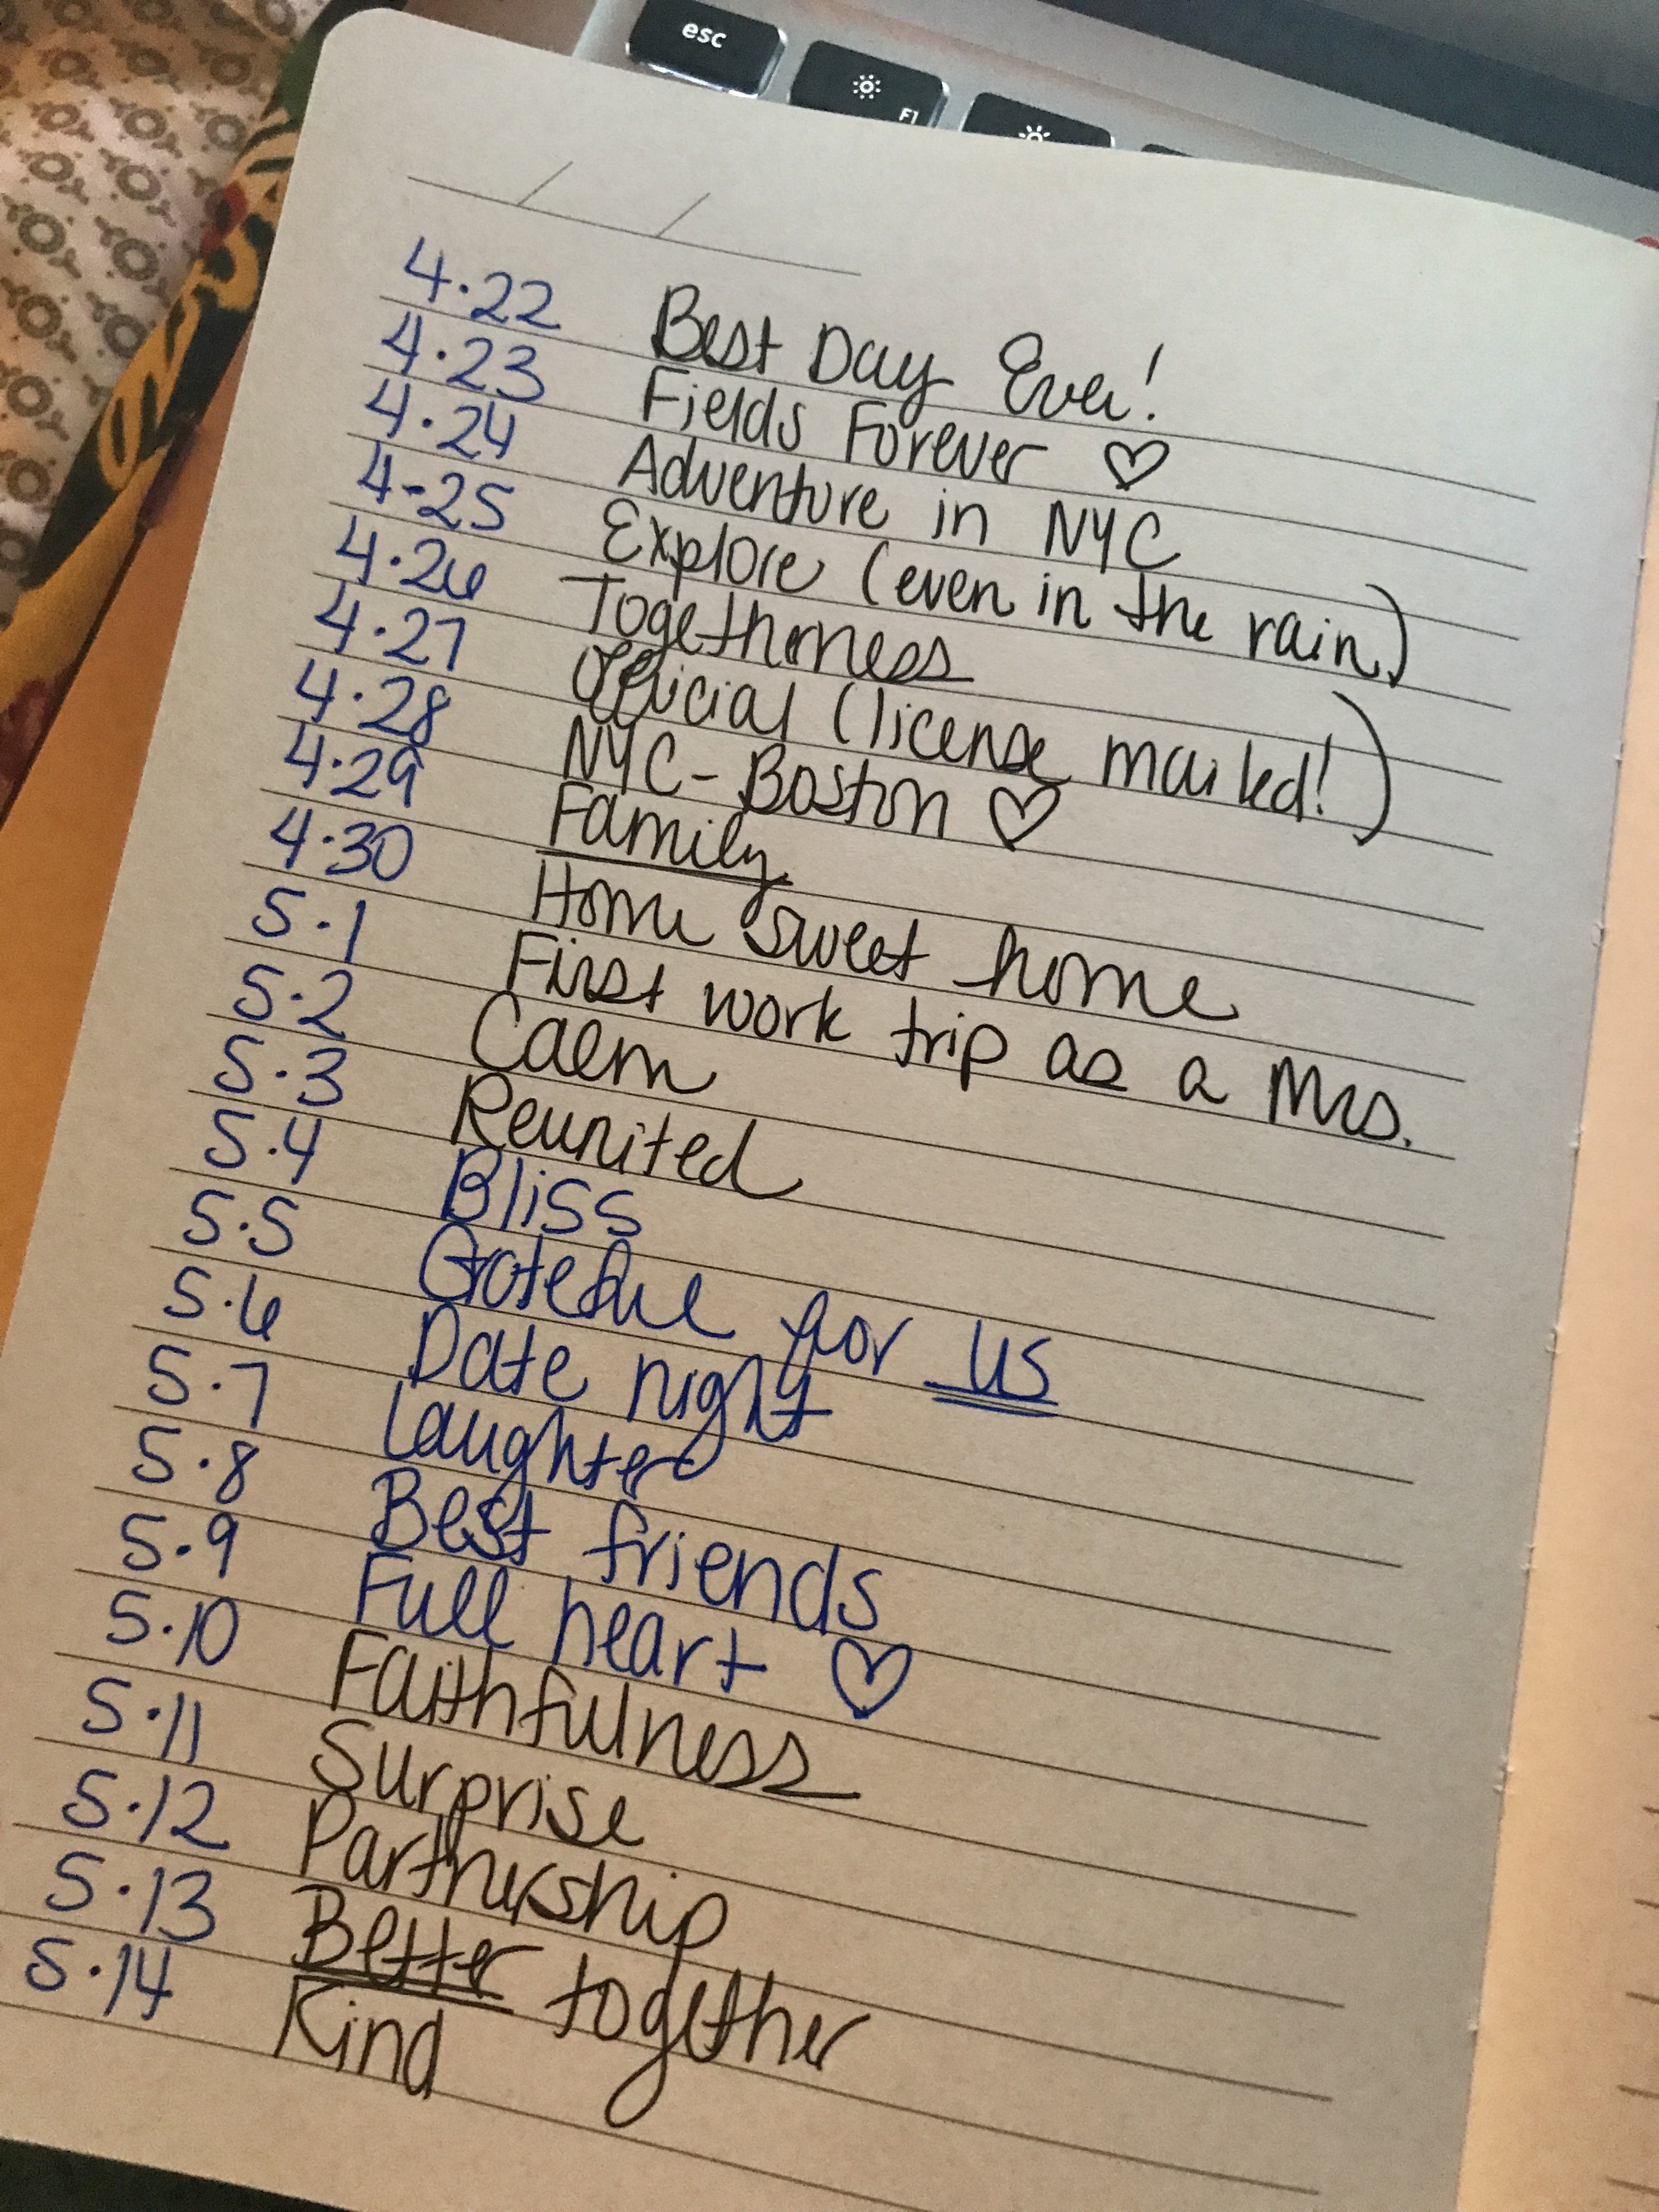 esc
F1
4.22 Best Day Ever!
4.23 Fields Forever ♡
4.24 Adventure in NYC
4-25 Explore (even in the rain)
4.26 Togetherness
4.27 Official (license mailed!)
4.28 NYC-Boston ♡
4.29 Family
4.30 Home sweet home
5.1 First work trip as a Mrs.
5.2 Calm
5.3 Reunited
5.4 Bliss
5.5 Grateful for us
5.6 Date night
5.7 Laughter
5.8 Best friends
5.9 Full heart ♡
5.10 Faithfulness
5.11 Surprise
5.12 Partnership
5.13 Better together
5.14 Kind